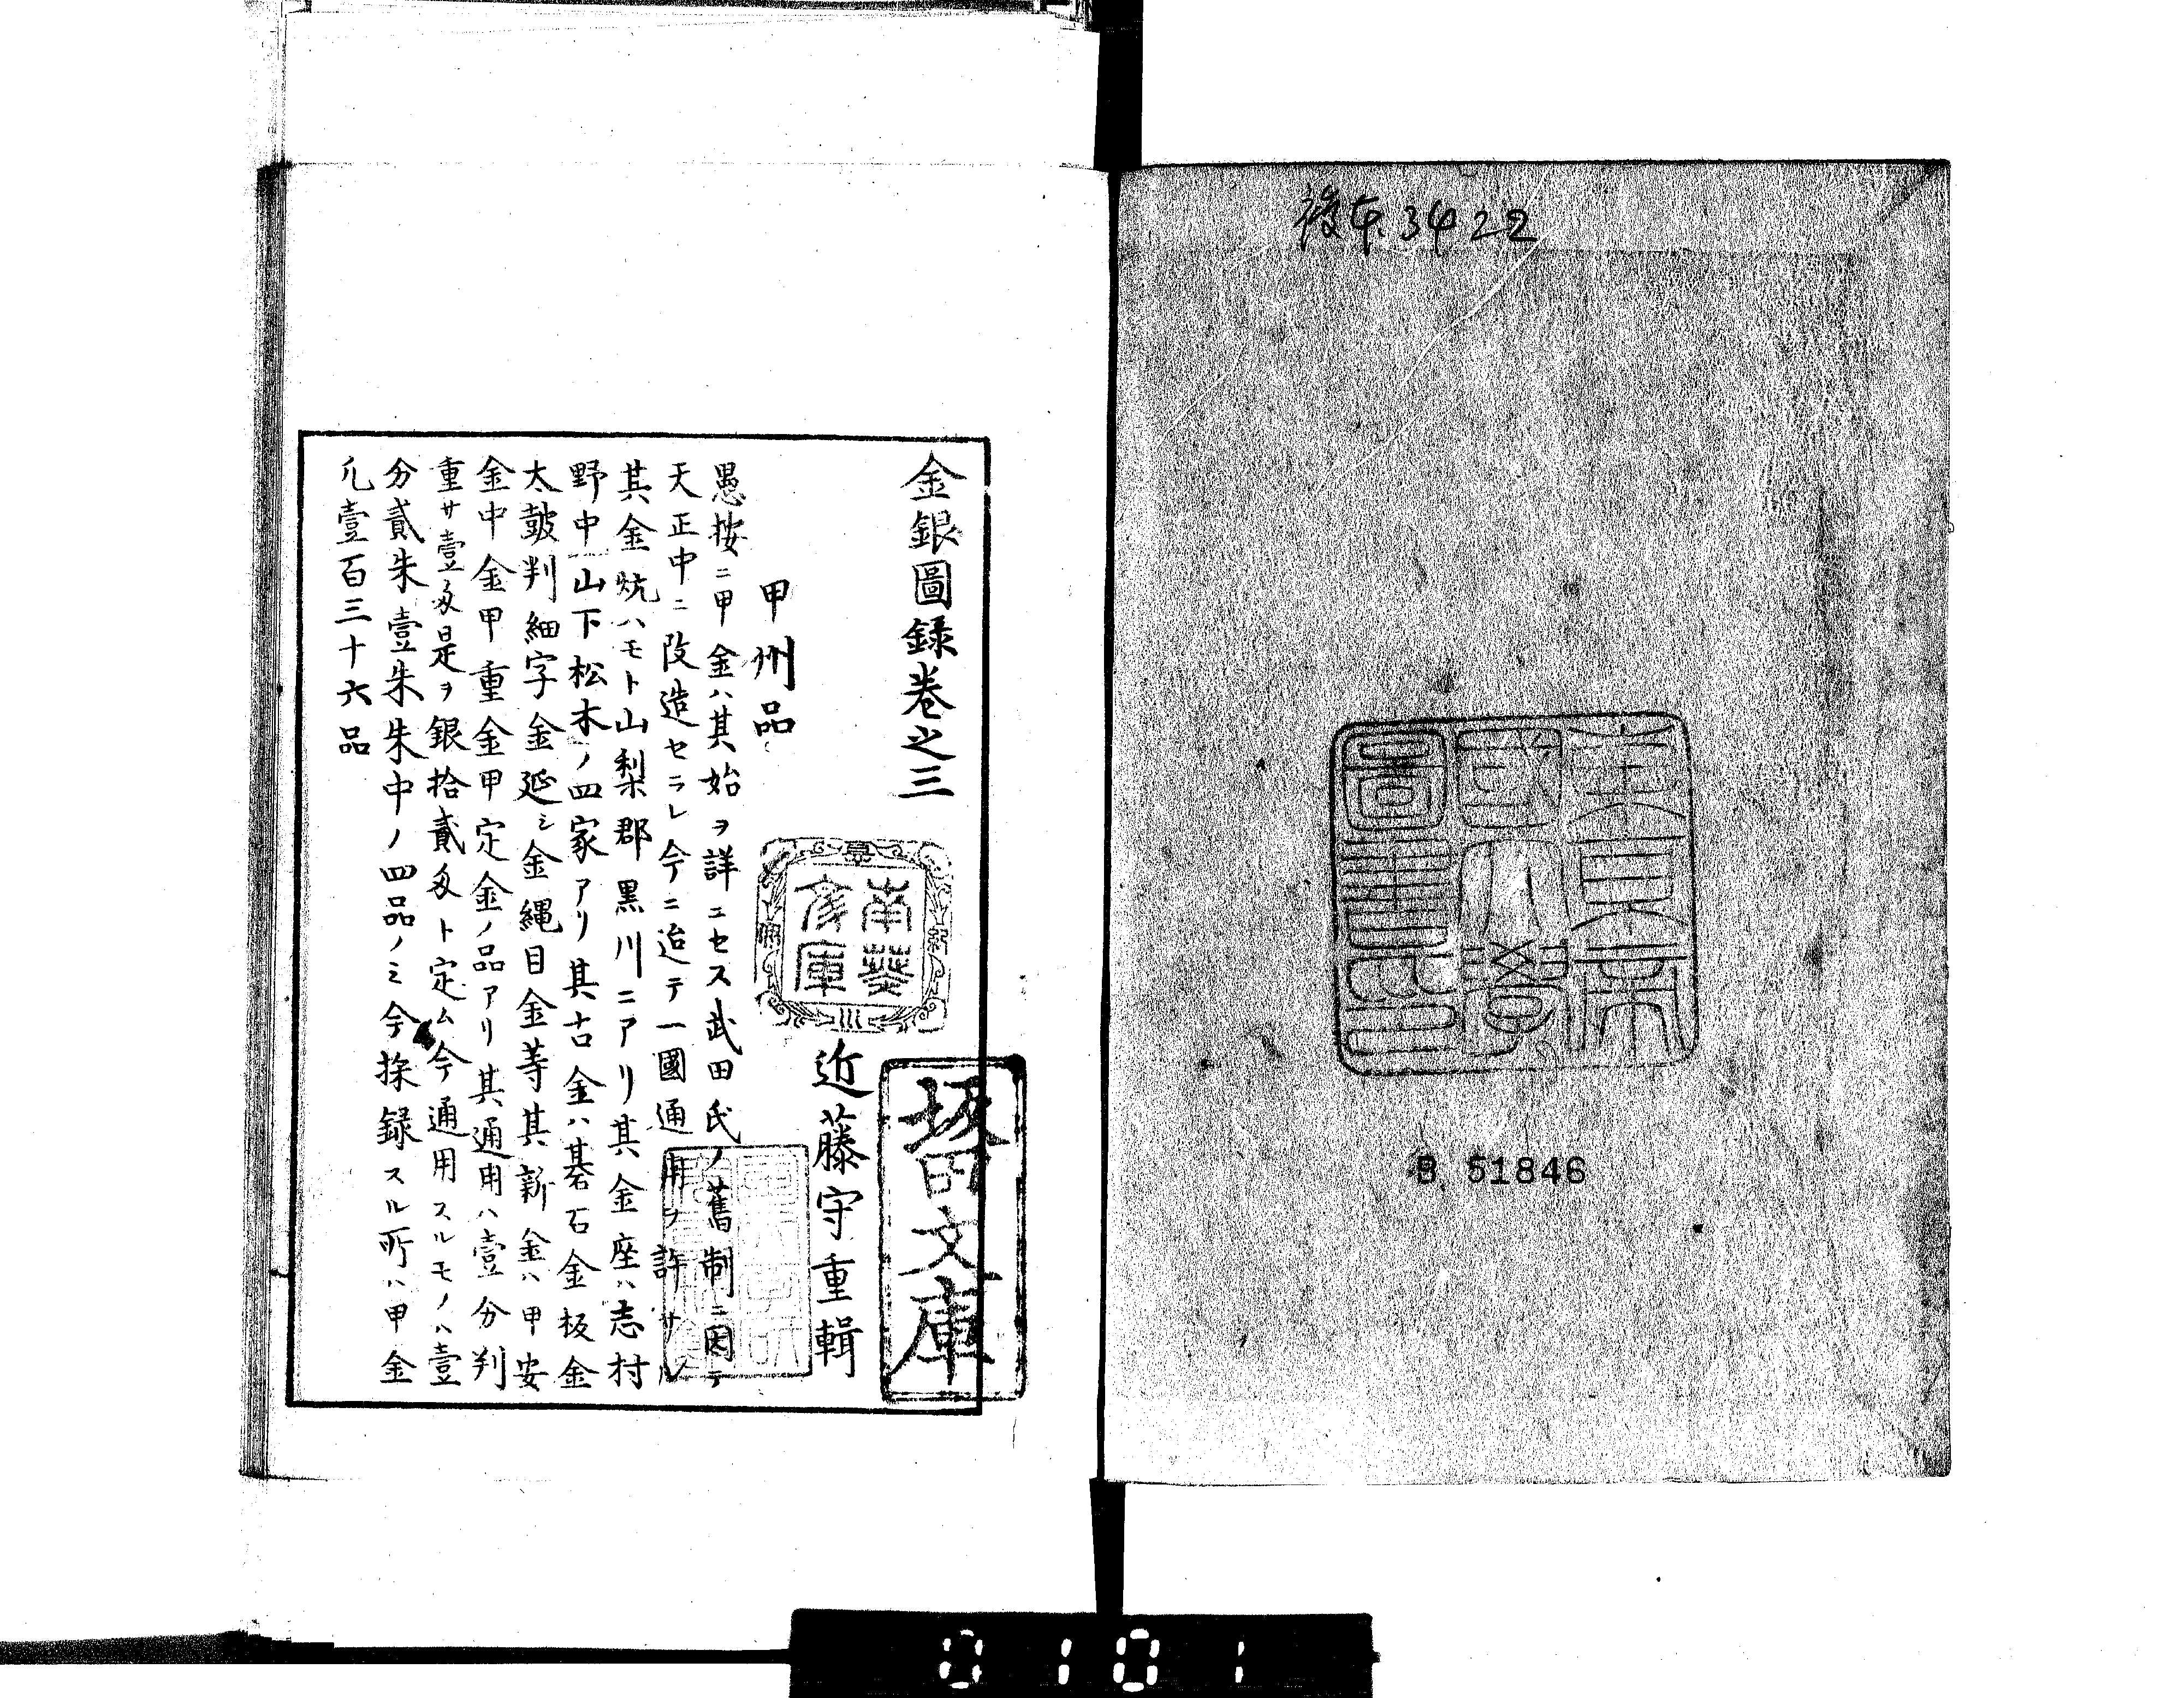 複本 3422
東京帝
國大學
圖書印
B 51846
金銀圖録卷之三
近藤守重輯
阪田文庫
南葵
文庫
甲州品
愚按ニ甲金ハ其始ヲ詳ニセス武田氏ノ舊制ニ因テ
天正中ニ改造セラレ今ニ迨テ一國通用ヲ許サル
其金炕ハモト山梨郡黒川ニアリ其金座ハ志村
野中山下松木ノ四家アリ其古金ハ碁石金板金
太皷判細字金延シ金縄目金等其新金ハ甲安
金中金甲重金甲定金ノ品アリ其通用ハ壹分判
重サ壹匁是ヲ銀拾貳匁ト定ム今通用スルモノハ壹
分貳朱壹朱朱中ノ四品ノミ今採録スル所ハ甲金
凢壹百三十六品
0101